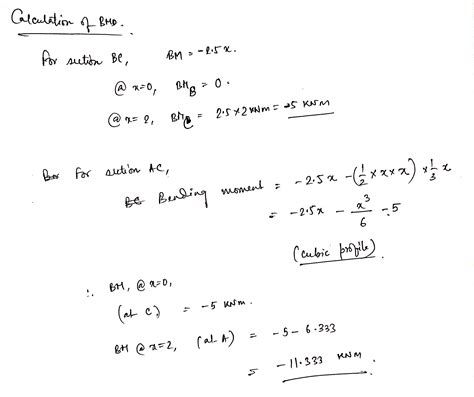 Calculation of BMD.
For section BC, BM = -2.5x.
@ x=0, BM_B = 0.
@ x= 2, BM_C = 2.5×2 KNm = 25 KNM
For section AC,
Bending moment = -2.5x - (1/2 × x × x) × 1/3 x
= -2.5x - x³/6 - 5
(cubic profile).
∴ BM, @ x=0,
(at C) = -5 KNm.
BM @ x=2, (at A) = -5 - 6.333
= -11.333 KNM.